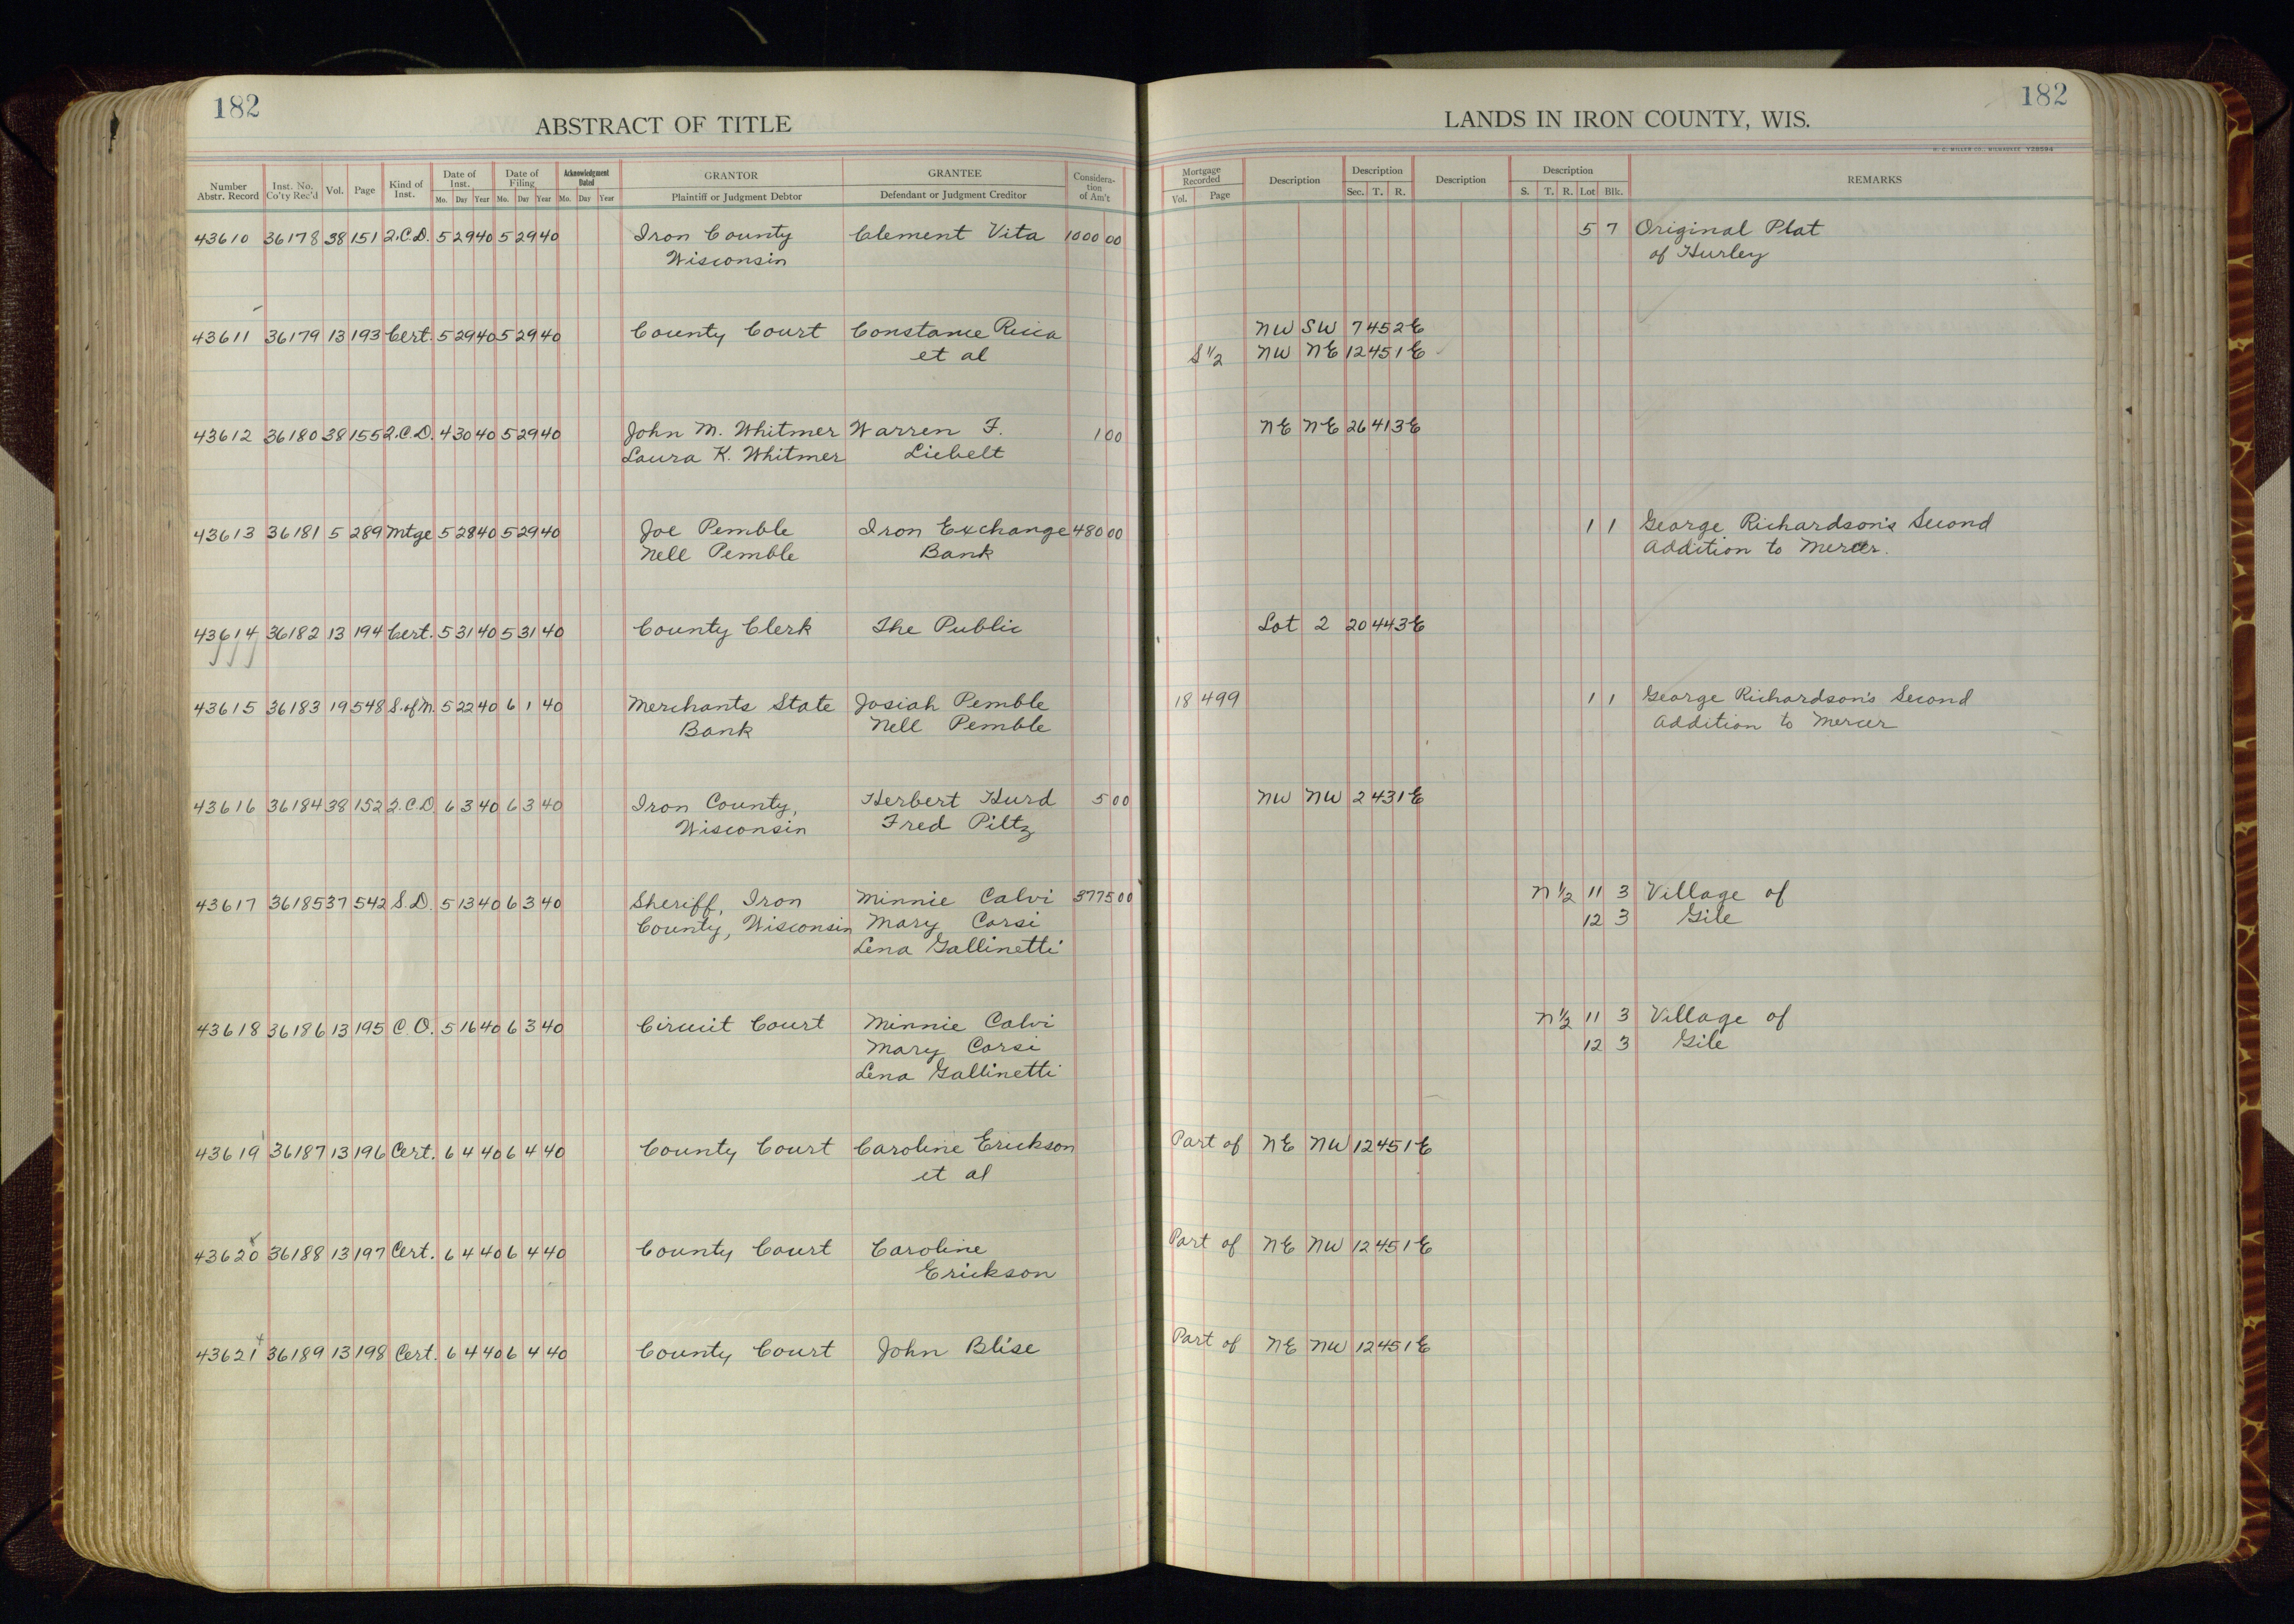 182
ABSTRACT OF TITLE
Number Abstr. Record Inst. No. Co'ty Rec'd Vol. Page Kind of Inst. Date of Inst. Mo. Day Year Date of Filing Mo. Day Year Acknowledgment Dated Mo. Day Year GRANTOR Plaintiff or Judgment Debtor GRANTEE Defendant or Judgment Creditor Consideration of Am't
182
LANDS IN IRON COUNTY, WIS.
H. C. MILLER CO., MILWAUKEE Y28594
Mortgage Recorded Vol. Page Description Description Sec. T. R. Description Description S. T. R. Lot Blk. REMARKS
43610 36178 38 151 2.C.D. 5 29 40 5 29 40 Iron County Clement Vita 1000 00 5 7 Original Plat
Wisconsin of Hurley
43611 36179 13 193 Cert. 5 29 40 5 29 40 County Court Constance Ricca NW SW 7 45 2E
et al S 1/2 NW NE 12 45 1E
43612 36180 38 155 2.C.D. 4 30 40 5 29 40 John M. Whitmer Warren F. 1 00 NE NE 26 41 3E
Laura K. Whitmer Liebelt
43613 36181 5 289 Mtge 5 28 40 5 29 40 Joe Pemble Iron Exchange 480 00 1 1 George Richardson's Second
Nell Pemble Bank Addition to Mercer.
43614 36182 13 194 Cert. 5 31 40 5 31 40 County Clerk The Public Lot 2 20 44 3E
43615 36183 19 548 S.ofM. 5 22 40 6 1 40 Merchants State Josiah Pemble 18 499 1 1 George Richardson's Second
Bank Nell Pemble Addition to Mercer
43616 36184 38 152 2.C.D 6 3 40 6 3 40 Iron County, Herbert Hurd 5 00 NW NW 2 43 1E
Wisconsin Fred Piltz
43617 36185 37 542 S.D. 5 13 40 6 3 40 Sheriff, Iron Minnie Calvi 3775 00 N 1/2 11 3 Village of
County, Wisconsin Mary Corsi 12 3 Gile
Lena Gallinetti
43618 36186 13 195 C.O. 5 16 40 6 3 40 Circuit Court Minnie Calvi N 1/2 11 3 Village of
Mary Corsi 12 3 Gile
Lena Gallinetti
43619 36187 13 196 Cert. 6 4 40 6 4 40 County Court Caroline Erickson Part of NE NW 12 45 1E
et al
43620 36188 13 197 Cert. 6 4 40 6 4 40 County Court Caroline Part of NE NW 12 45 1E
Erickson
43621 36189 13 198 Cert. 6 4 40 6 4 40 County Court John Blise Part of NE NW 12 45 1E